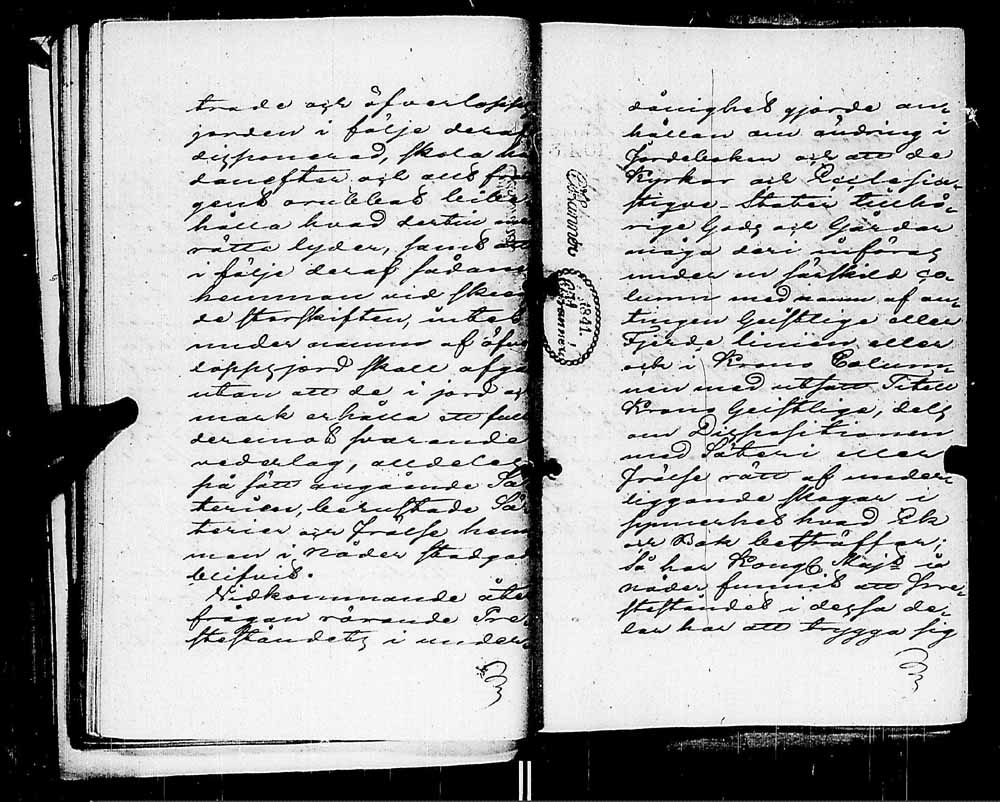 trade och öfverlopps
jorden i följe deraf
disponerad, skola hä
danefter och aus
gens orubbat bibe
hålla hvad dertill
rätta lyder, samt att
i följe deraf sådane
hemman vid skee
de storskiften, intet
under namn af öfver
loppsjord skall afgå
utan att de i jord och
mark erhålla ett full
deremot svarande
vederlag, alldeles
på sätt angående Sä
terier, berustade Sä
terier och Frälse hem
man i Nåder stadgat
blifvit.
Vidkommande åter
frågan rörande Pre-
steståndets i under-
dånighet gjorde an-
hållan om ändring i
Jordeboken och att de
Kyrkor och Ecclesia-
stique-Staten tillhö-
rige Gods och Gårdar
måga deri införas
under en särskild Co-
lumn med namn af an-
tingen Geistlige eller
Fjerde linien eller
ock i Krono Colum-
nen med utsatt Titel
Krono Geistlige, dels
om Dispositionen
med Säteri eller
Frälse rätt af under-
liggande skogar i
synnerhet hvad Ek
och Bok beträffar;
Så har Kongl Majt i
nåder funnit att Pre-
steståndet i dessa de-
lar har att trygga sig
1841